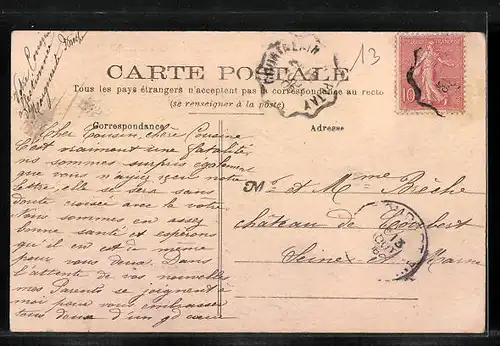 CARTE POSTALE
Tous les pays étrangers n'acceptent pas la correspondance au recto
(se renseigner à la poste)
Correspondance
Adresse
13
10
Votre Cousine
Marguerite
Cher Cousin, chère Cousine
C'est vraiment une fatalité
ns sommes surpris également
que vous n'ayez reçu notre
lettre, elle se sera sans
doute croisée avec la votre
Nous sommes en assez
bonne santé et espérons
qu'il en est de même
pour vous deux. Dans
l'attente de vos nouvelles
mes Parents se joignent à
moi pour vous embrasser
tous deux d'un gd cœur
Mr et Mme Brèche
château de
Seine et Marne